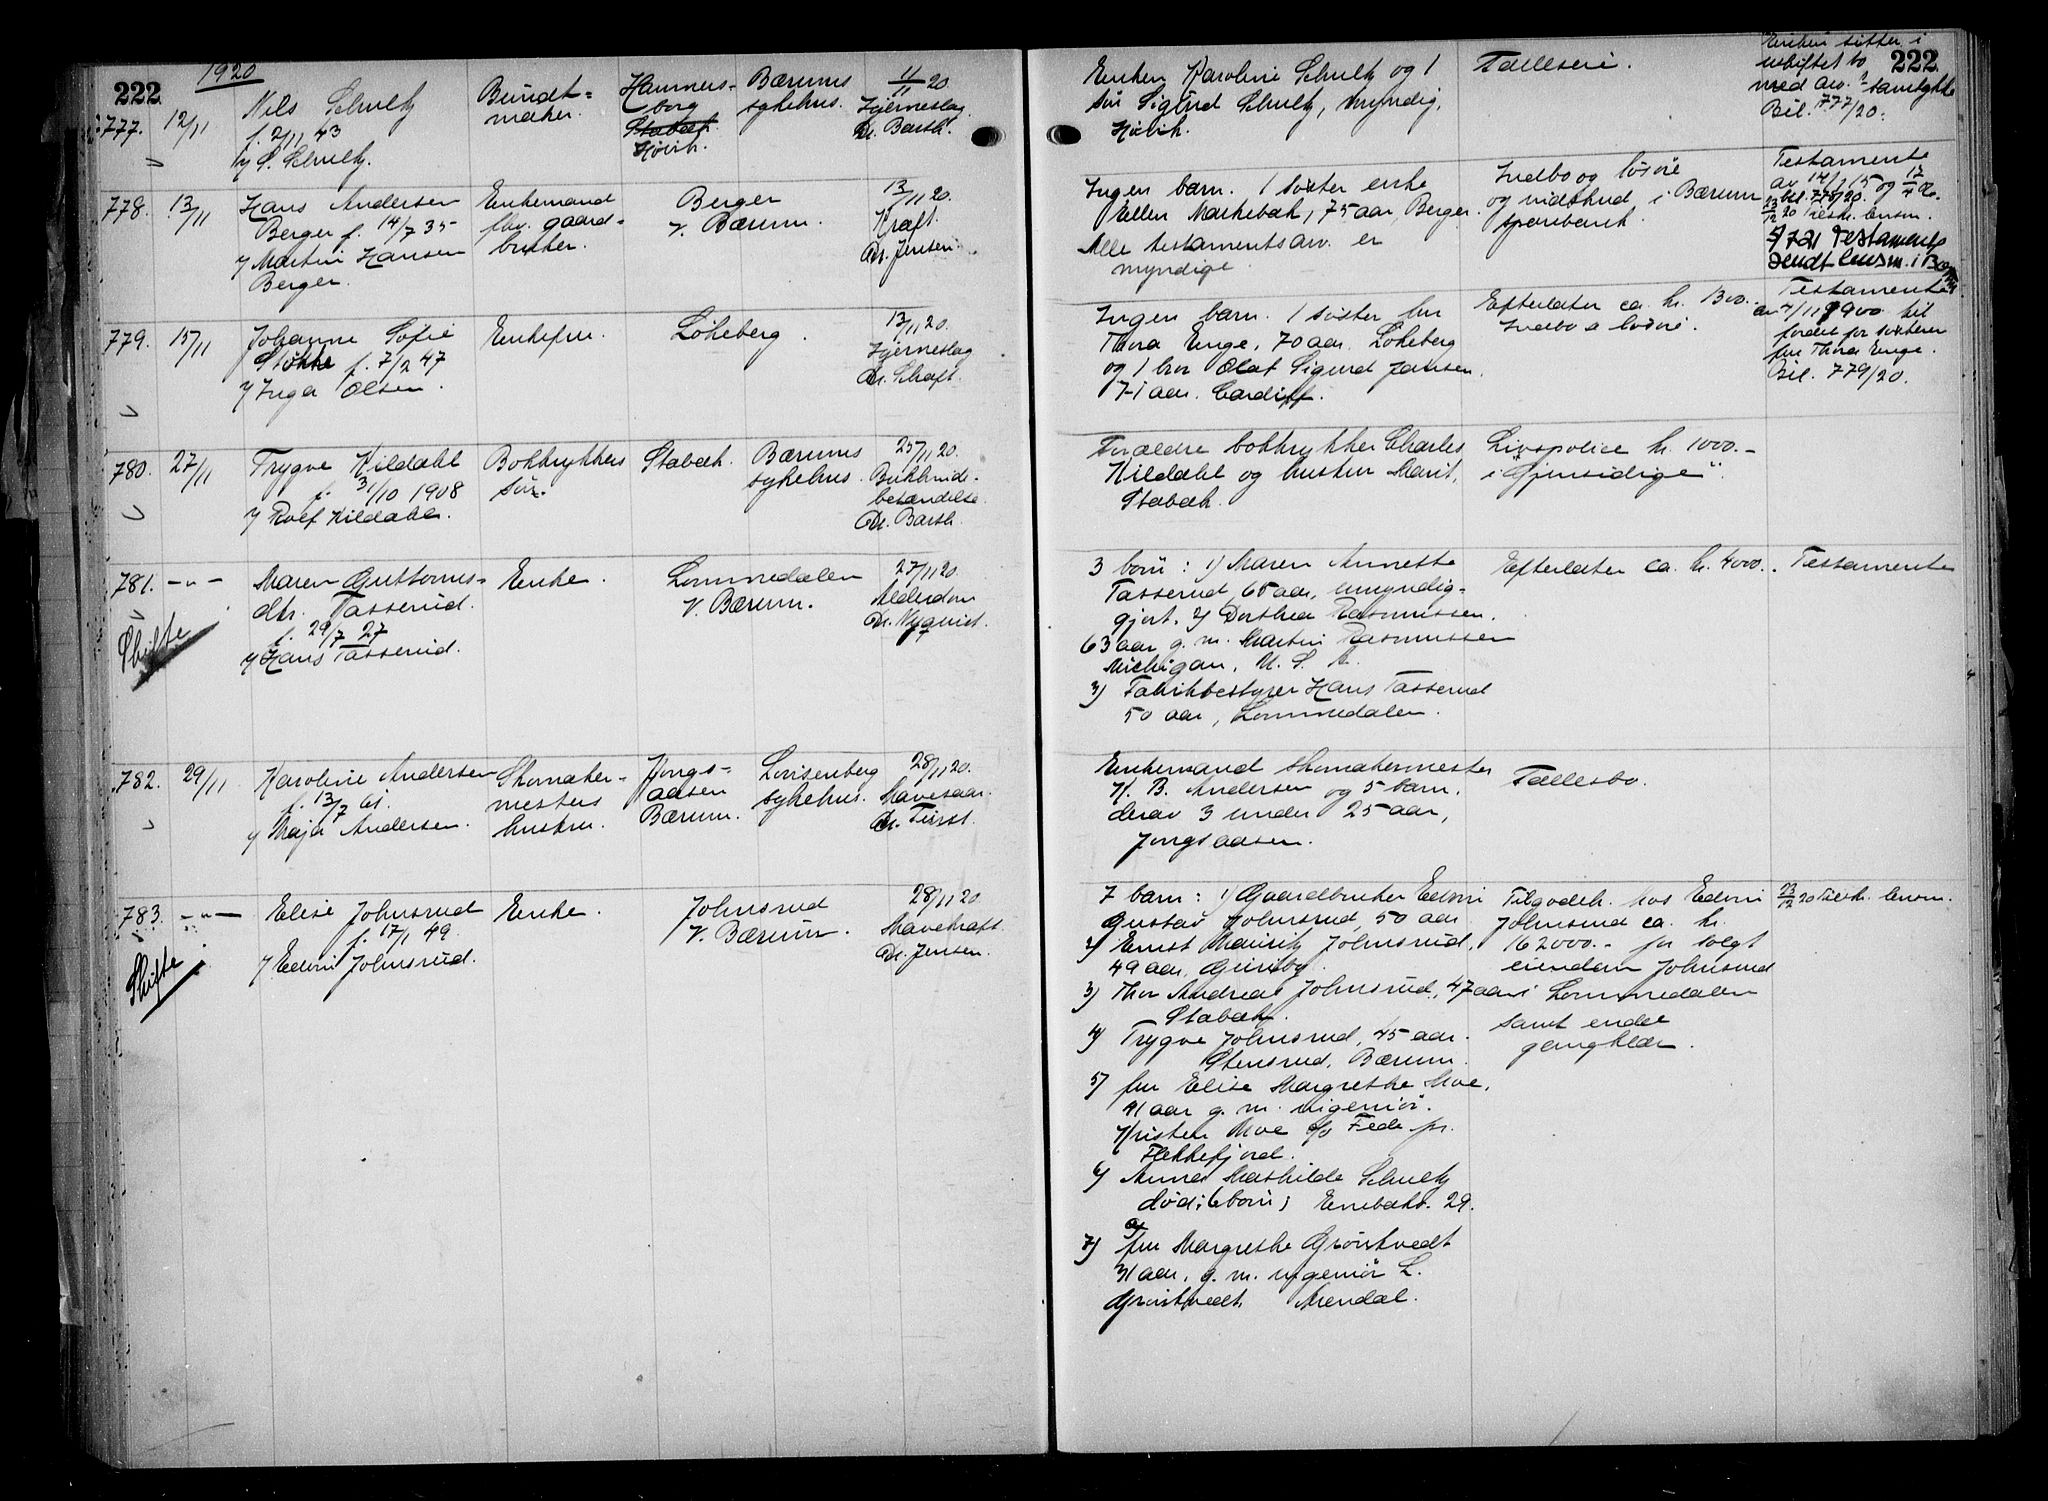 222
1920
777.
12/11
Nils Schultz
f. 2/11 43
v/ S. Schultz.
Bundt-
maker.
Hammers-
borg
Stabæk
Høvik.
Bærums
sykehus.
11/11 20
Hjerneslag
Dr. Barth.
778.
13/11
Hans Andersen
Berger f. 14/7 35
v/ Martin Hansen
Berger.
Enkemand
fhv. gaard-
bruker.
Berger
V. Bærum.
13/11 20.
Kræft.
Dr. Jensen.
779.
15/11
Johanne Sofie
Stokke f. 7/2 47
v/ Inga Olsen.
Enkefru.
Løkeberg.
13/11 20.
Hjerneslag
Dr. Schaft.
780.
27/11
Trygve Kildahl
f. 31/10 1908
v/ Rolf Kildahl.
Boktrykkers
søn.
Stabæk.
Bærums
sykehus.
25/11 20.
Bukhinde-
betændelse.
Dr. Barth.
781.
-"-
Maren Guttorms-
dtr. Tasserud.
f. 29/7 27
v/ Hans Tasserud.
Skifte
Enke.
Lommedalen
V. Bærum.
27/11 20.
Alderdom
Dr. Nyquist.
782.
29/11
Karoline Andersen
f. 13/7 61.
v/ Maja Andersen.
Skomaker-
mesters
hustru.
Jongs-
aasen
Bærum.
Lovisenberg
sykehus.
28/11 20.
Mavesaar.
Dr. Fürst.
783.
-"-
Elise Johnsrud
f. 17/1 49.
v/ Edvin Johnsrud.
Skifte
Enke.
Johnsrud
V. Bærum.
28/11 20.
Mavekræft
Dr. Jensen.
222
Enken Karoline Schultz og 1
søn Sigurd Schultz, myndig,
Høvik.
Fælleseie.
Enken sitter i
uskiftet bo
med arv. samtykke
Bil. 777/20.
Ingen barn. 1 søster enke
Ellen Markebæk, 75 aar, Berger.
Alle testamentsarv. er
myndige
Indbo og løsøre
og indskud i Bærum
sparebank.
Testamente
av 14/1 15 og 17/4
bil. 778/20.
23/12 20 tilskr. lensm.
5/7 21 Testamente
sendt lensm. i Bærum
Ingen barn. 1 søster fru
Thora Enge, 70 aar. Løkeberg
og 1 bror Olaf Sigurd Jansen.
71 aar. Cardiff.
Efterlater ca. kr. 1300.-
Indbo a løsøre.
Testamente
av 4/11 1900 til
fordel for søsteren
fru Thora Enge.
Bil. 779/20.
Forældre boktrykker Charles
Kildahl og hustru Marit,
Stabæk.
Livspolice kr. 1000.-
i "Gjensidige".
3 barn: 1) Maren Annette
Tasserud, 65 aar, umyndig-
gjort. 2) Dorthea Rasmussen.
63 aar g. m. Martin Rasmussen
Michigan, U. S. A.
3) Fabrikbestyrer Hans Tasserud
50 aar, Lommedalen.
Efterlater ca. kr. 4000.
Testamente
Enkemand skomakermester
H. B. Andersen og 5 barn.
derav 3 under 25 aar,
Jongsaasen.
Fællesbo.
7 barn: 1) Gaardbruker Edvin
Gustav Johnsrud, 50 aar
2) Ernst Mauritz Johnsrud,
49 aar,
3) Thor Andreas Johnsrud, 47 aar
Stabæk.
4) Trygve Johnsrud, 45 aar.
Stensrud, Bærum.
5) fru Elise Margrethe Moe,
41 aar g. m. ingeniør.
Kristen Moe Fede pr.
Flekkefjord.
6) Anna Mathilde Schultz
død: (6 barn) 29.
7) fru Margrethe Grøstvedt
31 aar. g. m. ingeniør L.
Grøstvedt, Arendal.
Tilgodeh. hos Edvin
Johnsrud ca. kr.
162000.- for solgt
eiendom Johnsrud
i Lommedalen
samt endel
gangklær.
23/12 20 tilskr. lensm.